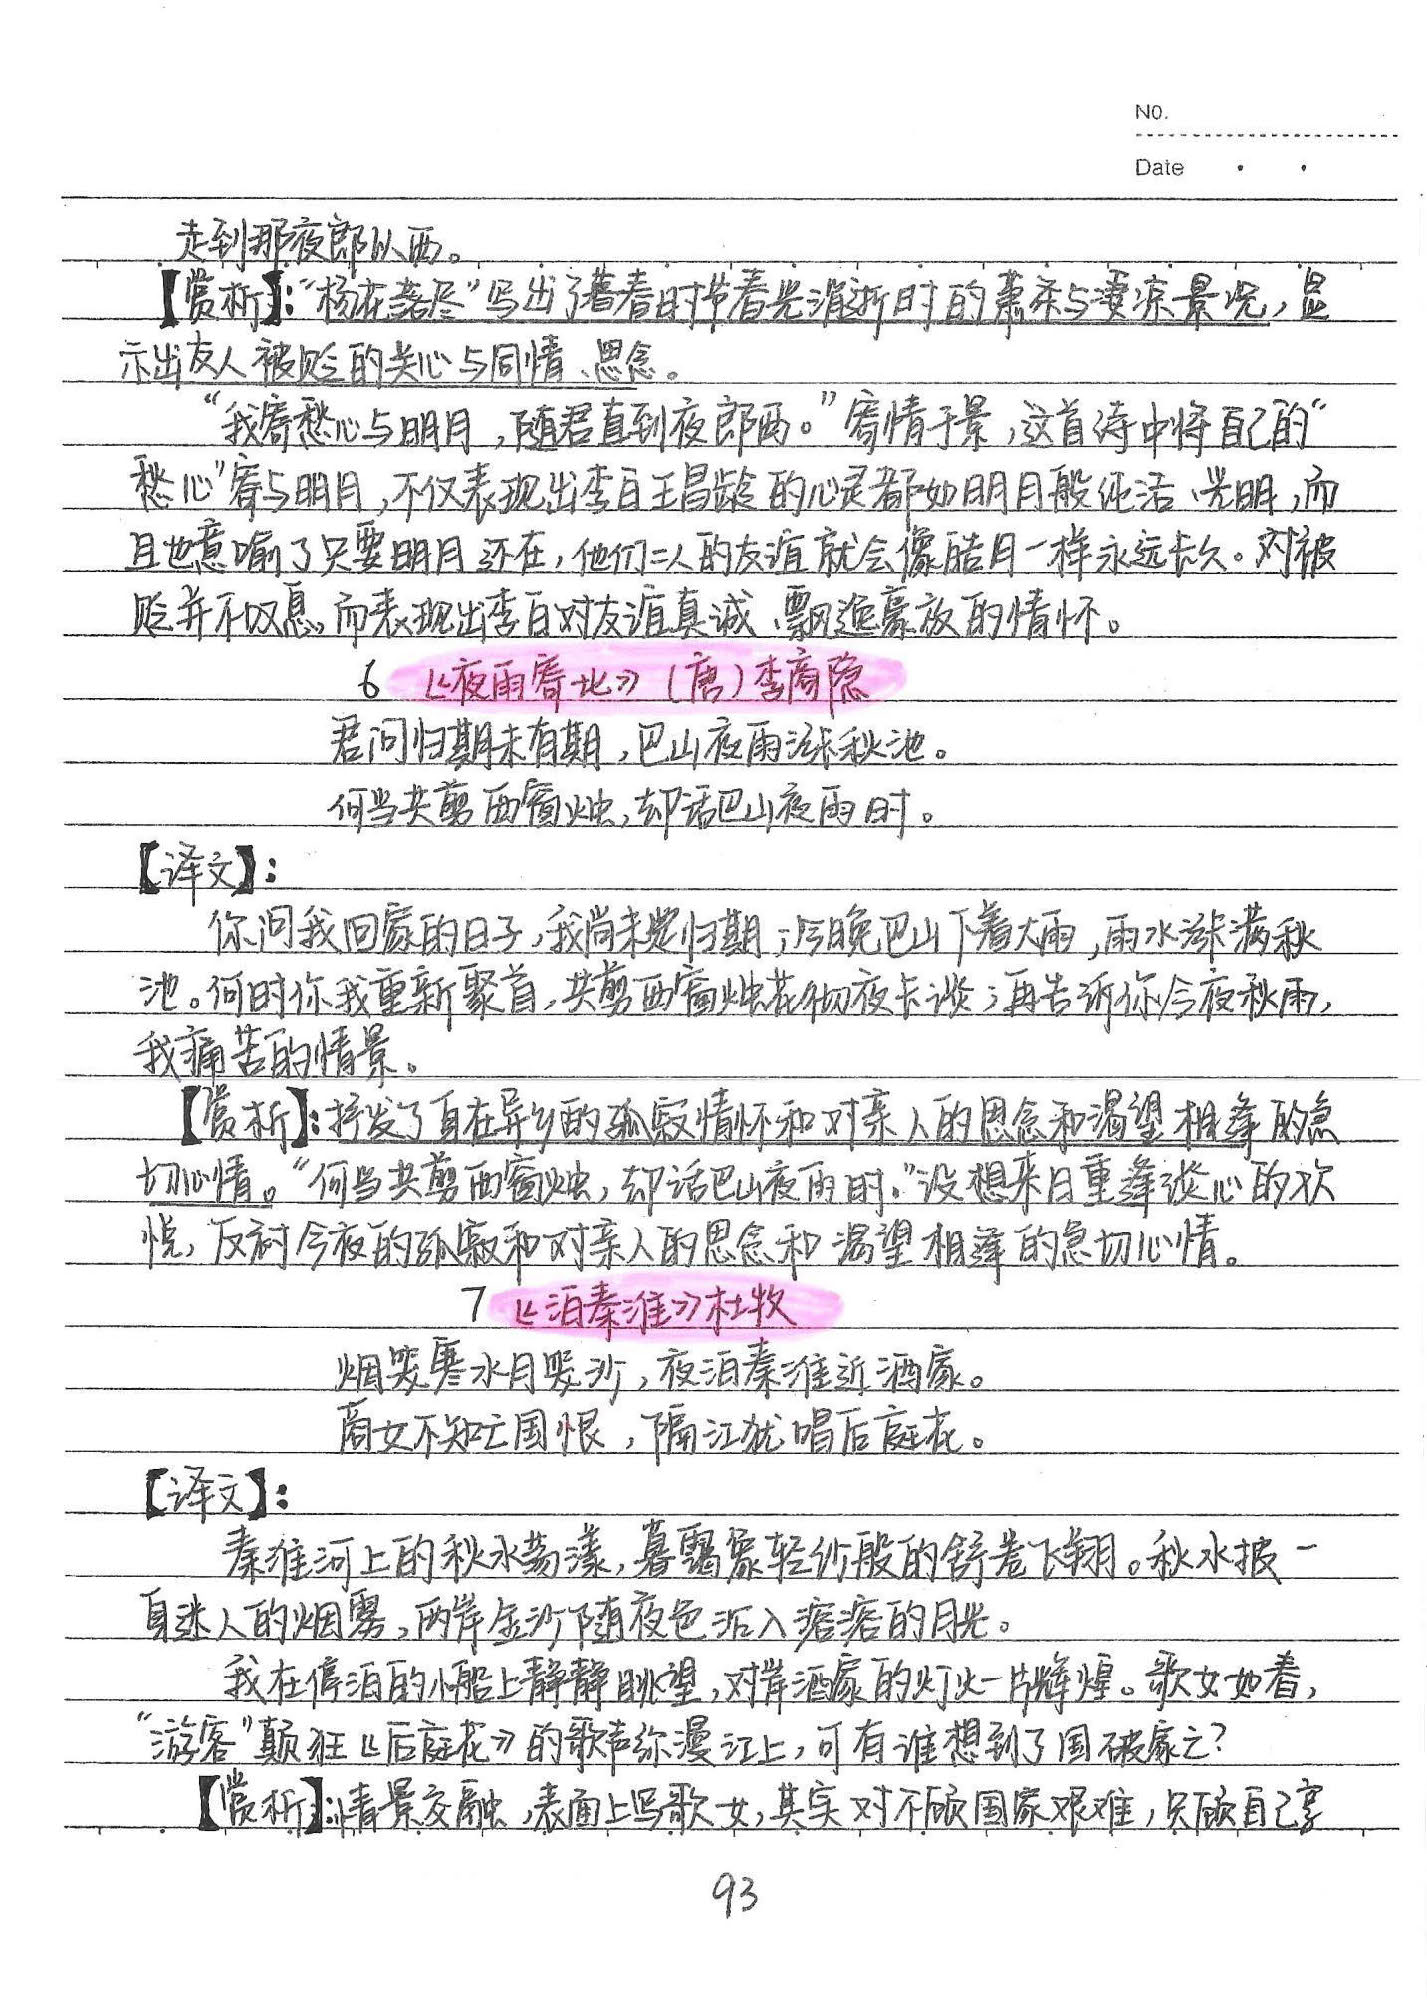 NO.
Date
走到那夜郎以西。
【赏析】:“杨花落尽”写出了暮春时节春光消逝时的萧条与凄凉景况，显
示出友人被贬的关心与同情、思念。
“我寄愁心与明月，随君直到夜郎西。”寄情于景，这首诗中将自己的“
愁心”寄与明月，不仅表现出李白王昌龄的心灵都如明月般纯洁、光明，而
且也意喻了只要明月还在，他们二人的友谊就会像皓月一样永远长久。对被
贬并不叹息，而表现出李白对友谊真诚、飘逸豪放的情怀。
6 《夜雨寄北》（唐）李商隐
君问归期未有期，巴山夜雨涨秋池。
何当共剪西窗烛，却话巴山夜雨时。
【译文】:
你问我回家的日子，我尚未定归期；今晚巴山下着大雨，雨水涨满秋
池。何时你我重新聚首，共剪西窗烛花彻夜长谈；再告诉你今夜秋雨，
我痛苦的情景。
【赏析】:抒发了身在异乡的孤寂情怀和对亲人的思念和渴望相逢的急
切心情。“何当共剪西窗烛，却话巴山夜雨时。”设想来日重逢谈心的欢
悦，反衬今夜的孤寂和对亲人的思念和渴望相逢的急切心情。
7 《泊秦淮》杜牧
烟笼寒水月笼沙，夜泊秦淮近酒家。
商女不知亡国恨，隔江犹唱后庭花。
【译文】:
秦淮河上的秋水荡漾，暮霭象轻纱般的舒卷飞翔。秋水披一
身迷人的烟雾，两岸金沙随夜色沉入溶溶的月光。
我在停泊的小船上静静眺望，对岸酒家的灯火一片辉煌。歌女如春，
“游客”颠狂《后庭花》的歌声弥漫江上，可有谁想到了国破家亡？
【赏析】:情景交融，表面上写歌女，其实对不顾国家艰难，只顾自己享
93